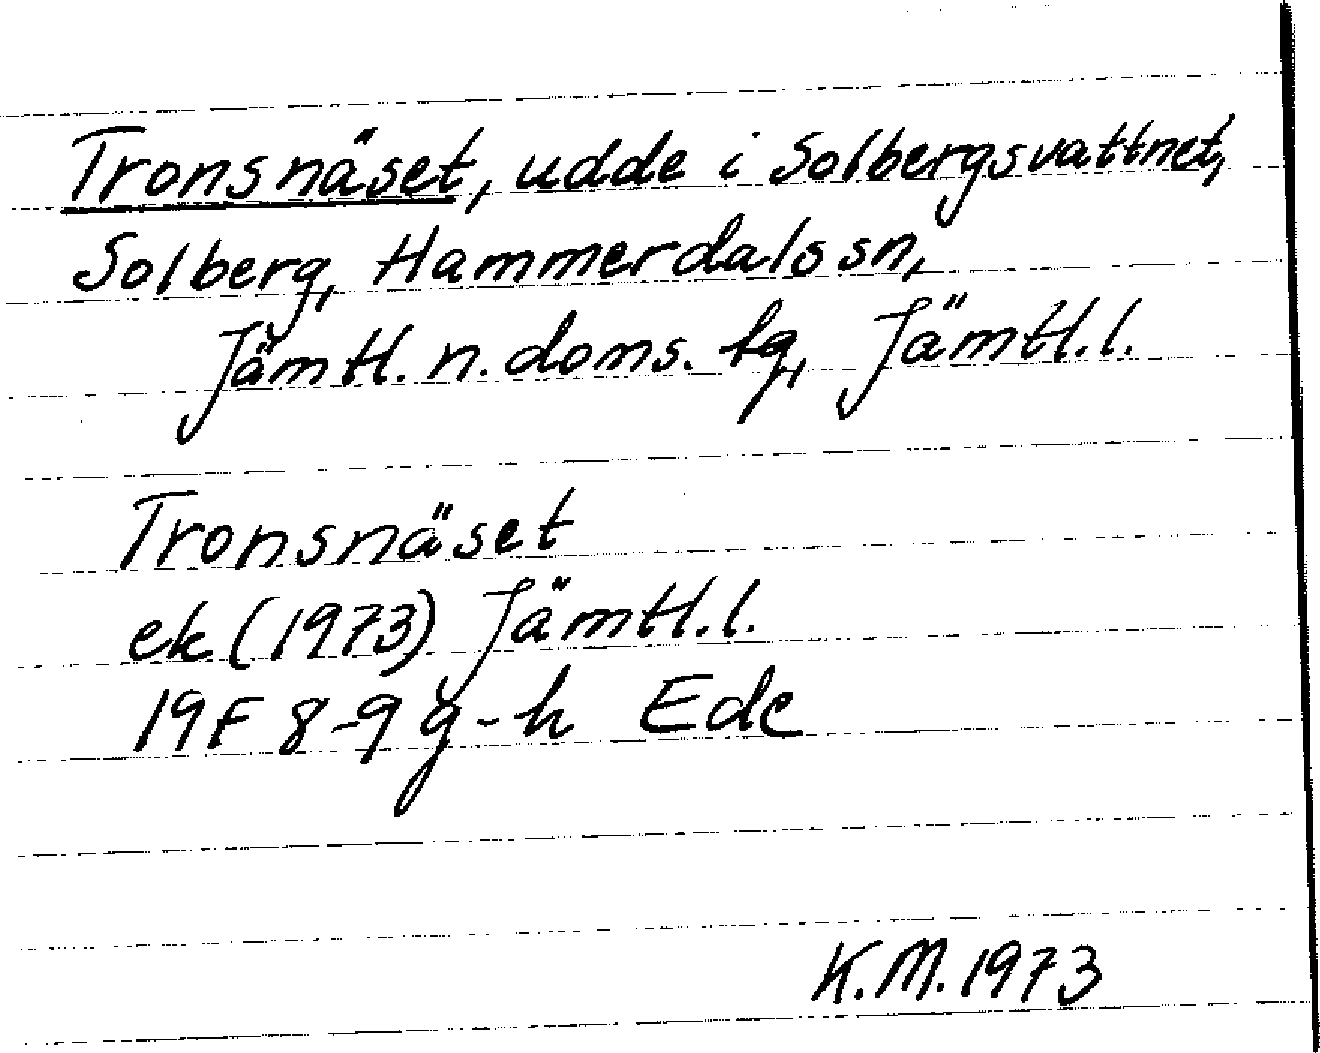 Tronsnäset, udde i Solbergsvattnet,
Solberg, Hammerdals sn,
Jämtl. n. doms. tg, Jämtl. l.
Tronsnäset
ek (1973) Jämtl. l.
19F 8-9 g-h Ede
K.M. 1973